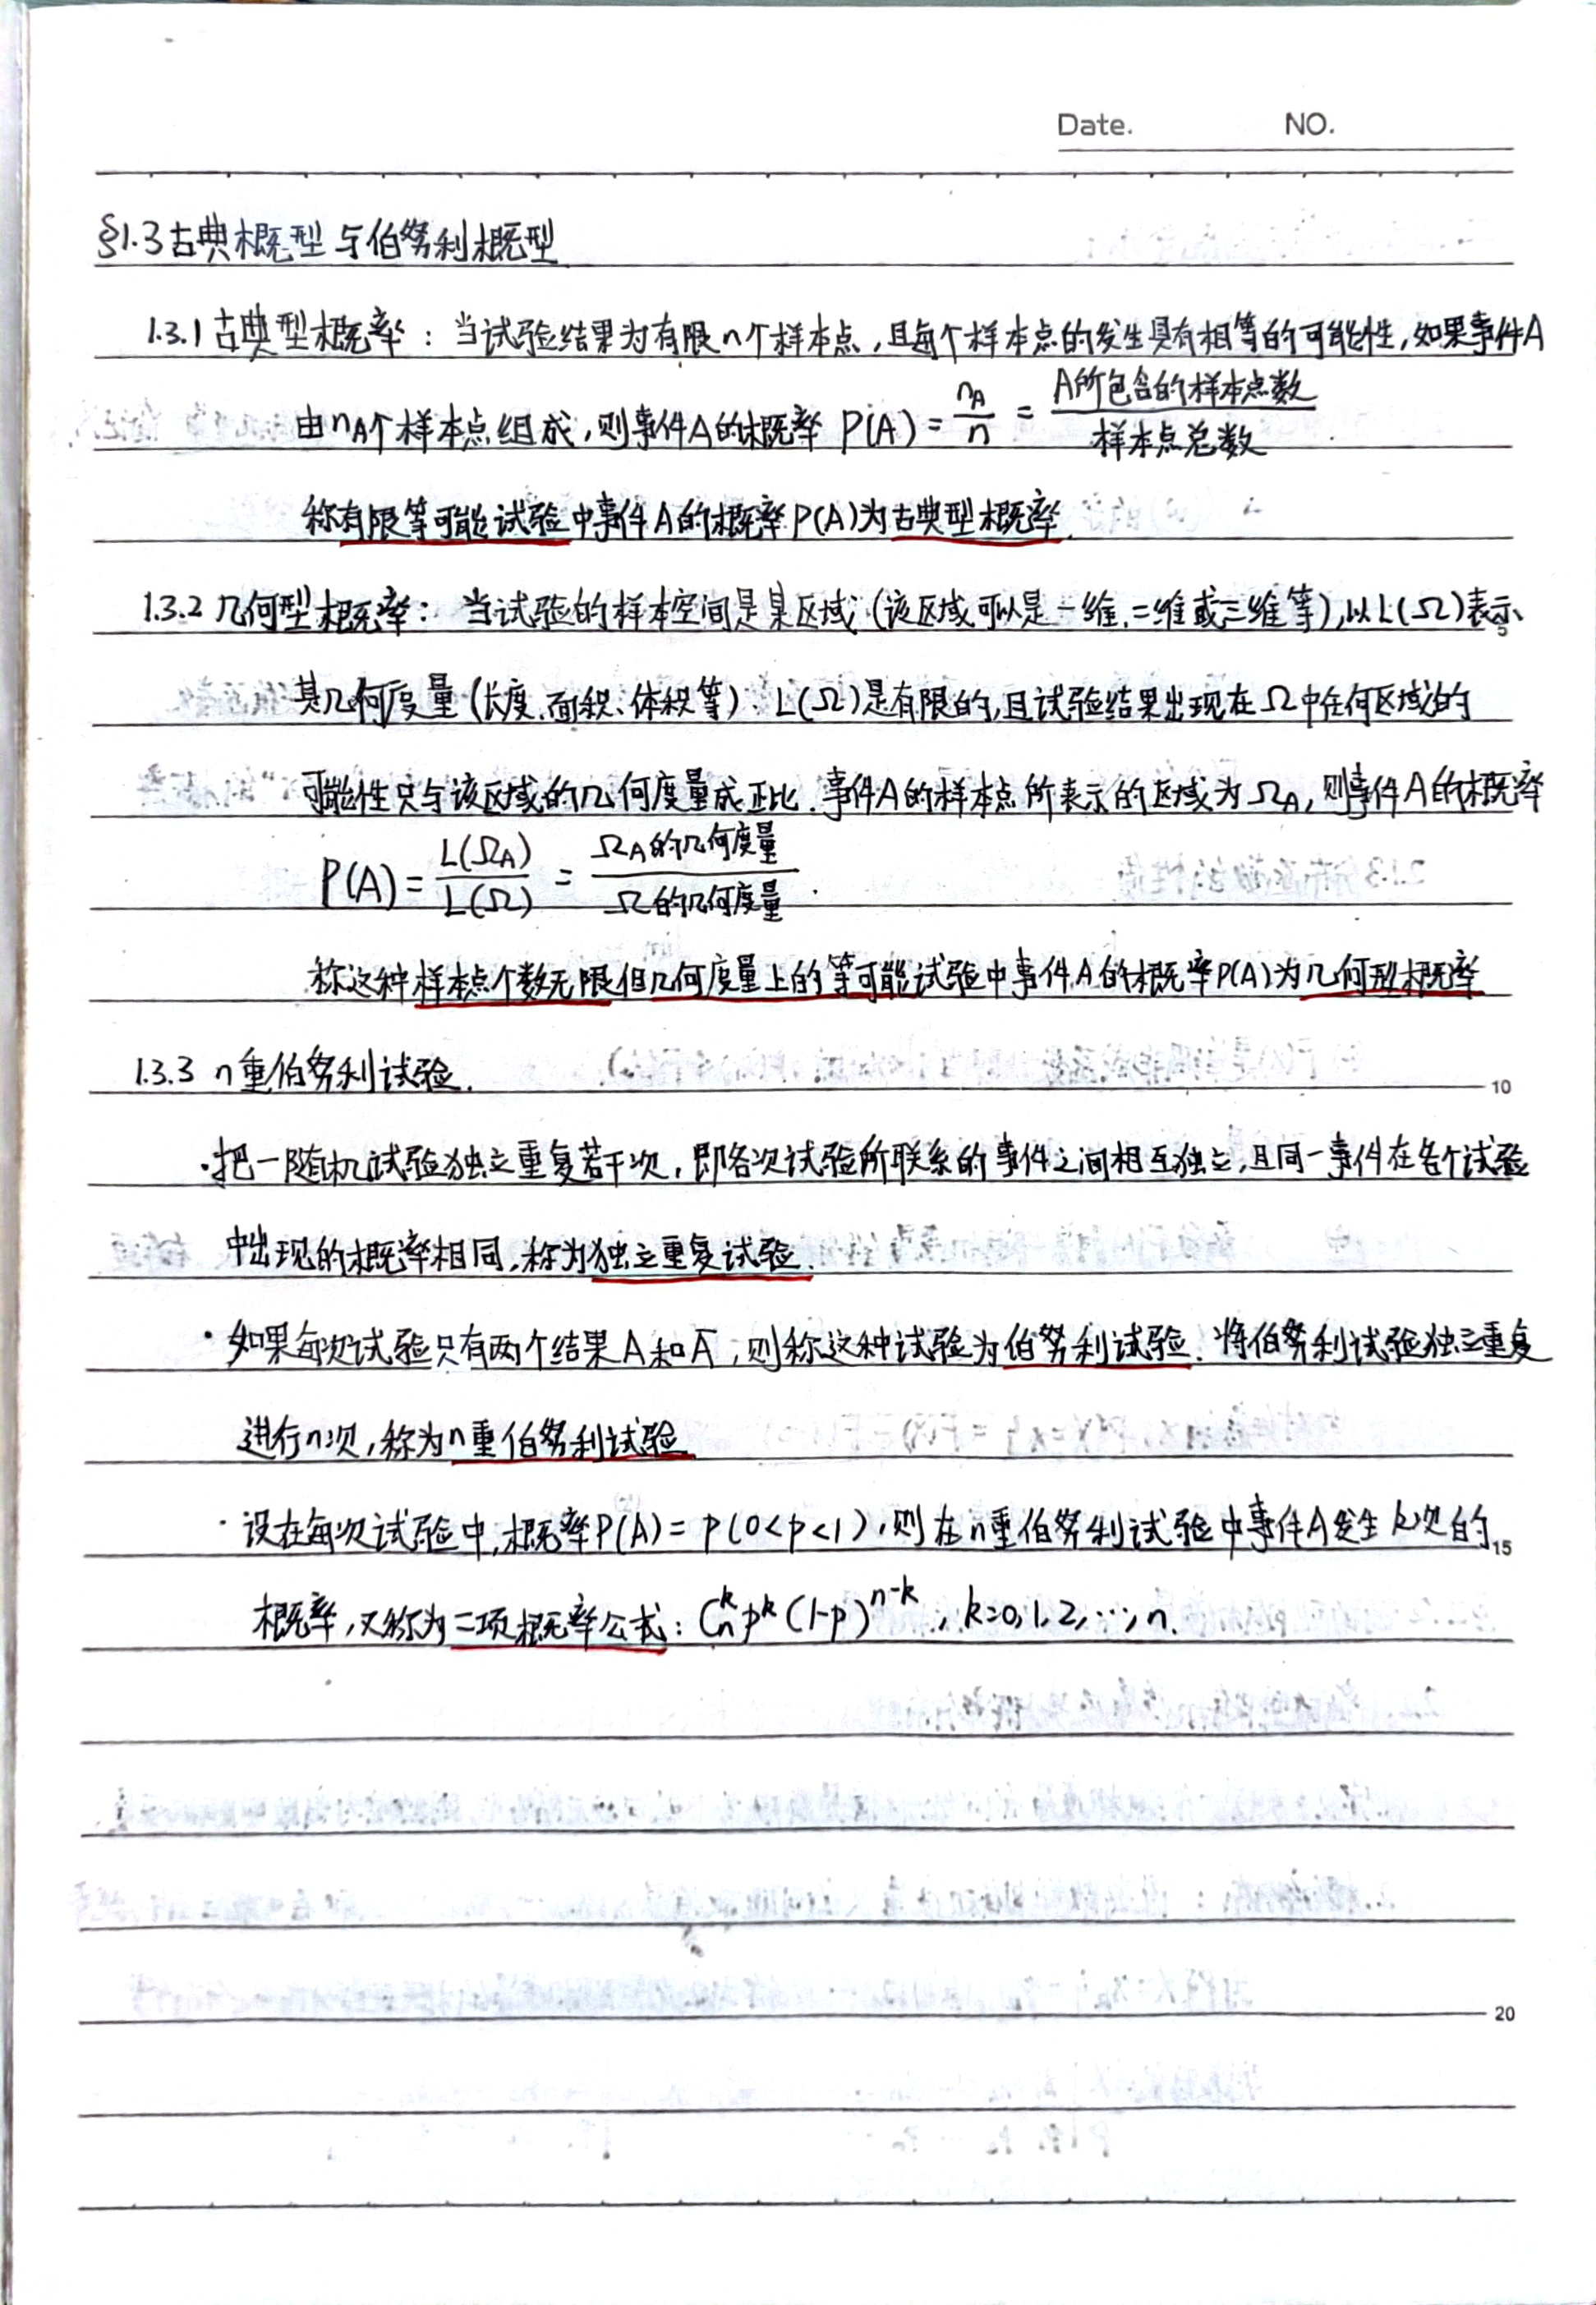 Date. NO.
§1.3古典概型与伯努利概型
1.3.1 古典型概率：当试验结果为有限n个样本点，且每个样本点的发生具有相等的可能性，如果事件A
由n_A个样本点组成，则事件A的概率 P(A) = n_A/n = A所包含的样本点数/样本点总数
称有限等可能试验中事件A的概率P(A)为古典型概率.
1.3.2 几何型概率：当试验的样本空间是某区域（该区域可以是一维、二维或三维等），以L(Ω)表示
5
其几何度量（长度、面积、体积等）. L(Ω)是有限的，且试验结果出现在Ω中任何区域的
可能性只与该区域的几何度量成正比. 事件A的样本点所表示的区域为Ω_A，则事件A的概率
P(A) = L(Ω_A)/L(Ω) = Ω_A的几何度量/Ω的几何度量.
称这种样本点个数无限但几何度量上的等可能试验中事件A的概率P(A)为几何型概率
1.3.3 n重伯努利试验.
10
·把一随机试验独立重复若干次，即各次试验所联系的事件之间相互独立，且同一事件在各个试验
中出现的概率相同，称为独立重复试验.
·如果每次试验只有两个结果A和A̅，则称这种试验为伯努利试验. 将伯努利试验独立重复
进行n次，称为n重伯努利试验
·设在每次试验中，概率P(A) = p (0<p<1)，则在n重伯努利试验中事件A发生k次的
15
概率，又称为二项概率公式：C_n^k p^k (1-p)^{n-k}, k=0,1,2,⋯,n.
20